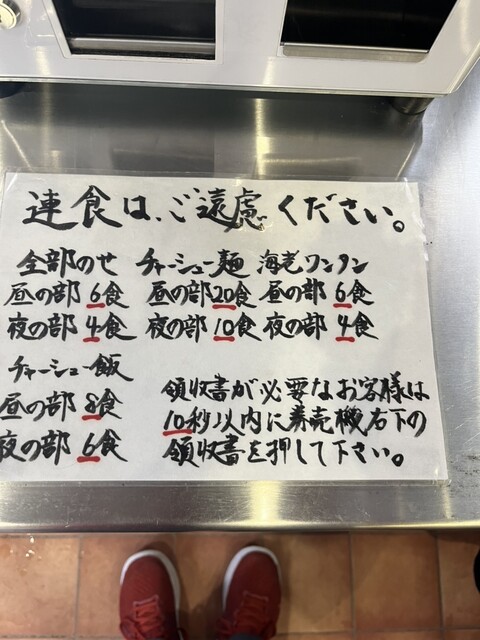 連食は、ご遠慮ください。
全部のせ チャーシュー麺 海老ワンタン
昼の部 6食 昼の部 20食 昼の部 6食
夜の部 4食 夜の部 10食 夜の部 4食
チャーシュー飯
昼の部 8食
夜の部 6食
領収書が必要なお客様は
10秒以内に券売機右下の
領収書を押して下さい。